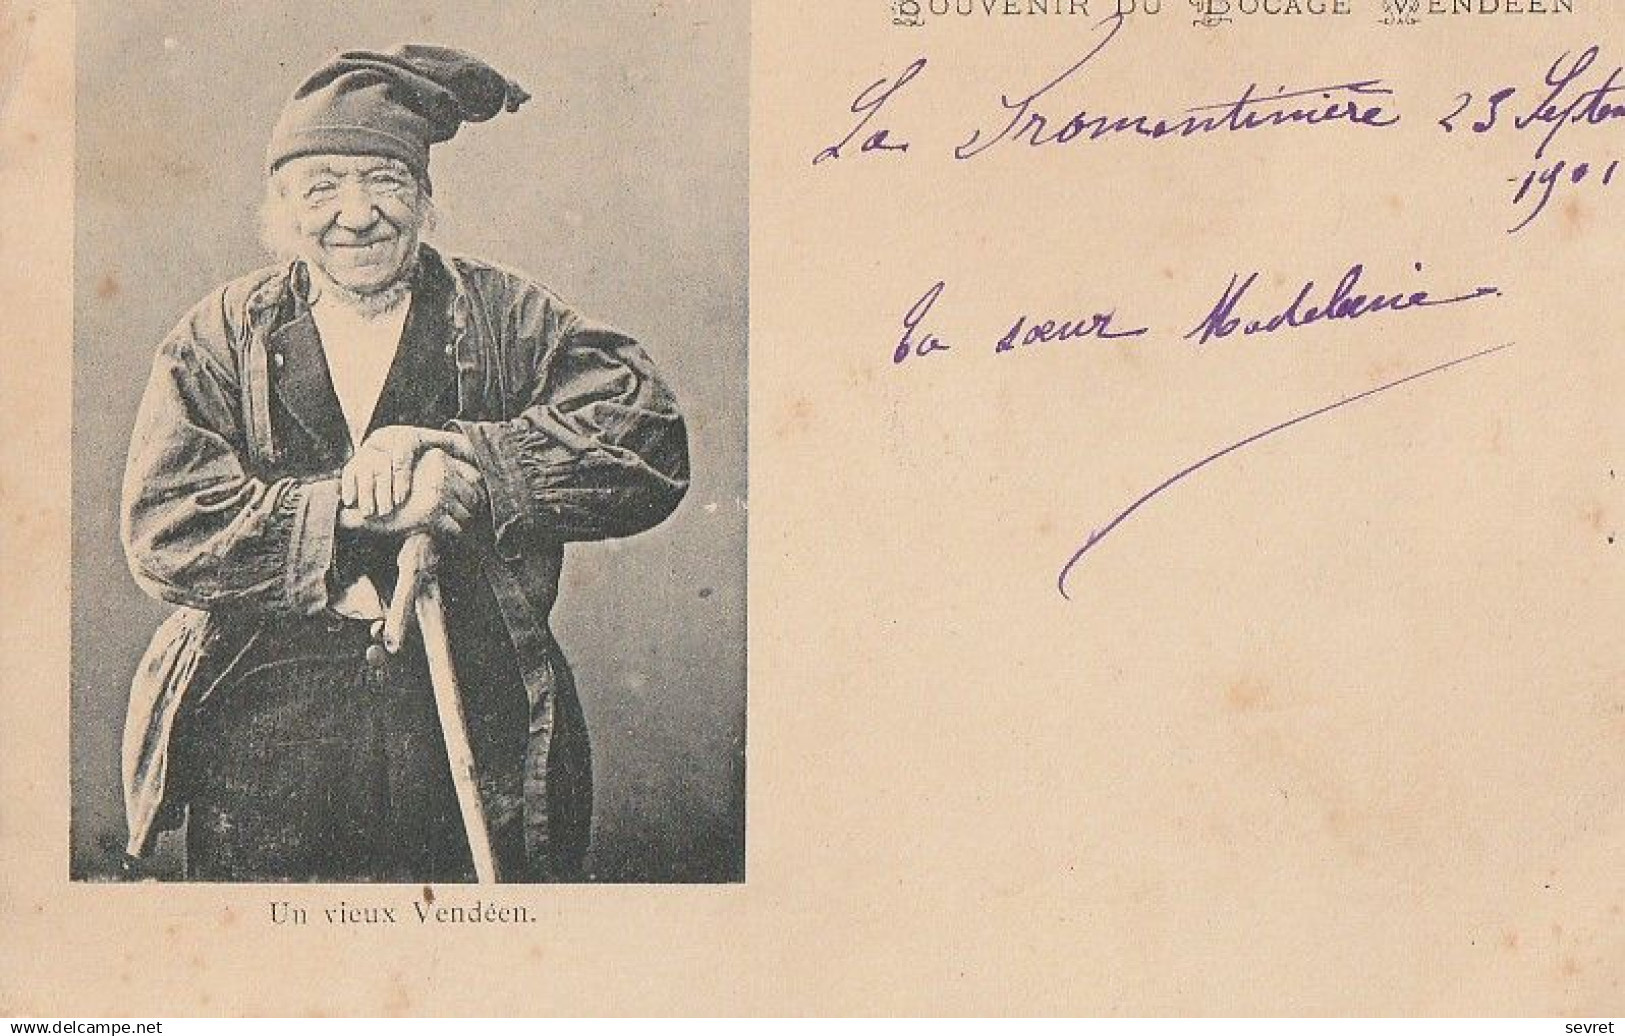 SOUVENIR DU BOCAGE VENDÉEN
La Fromentinière 23 Septem
1901
Ta sœur Madeleine
Un vieux Vendéen.
sevret